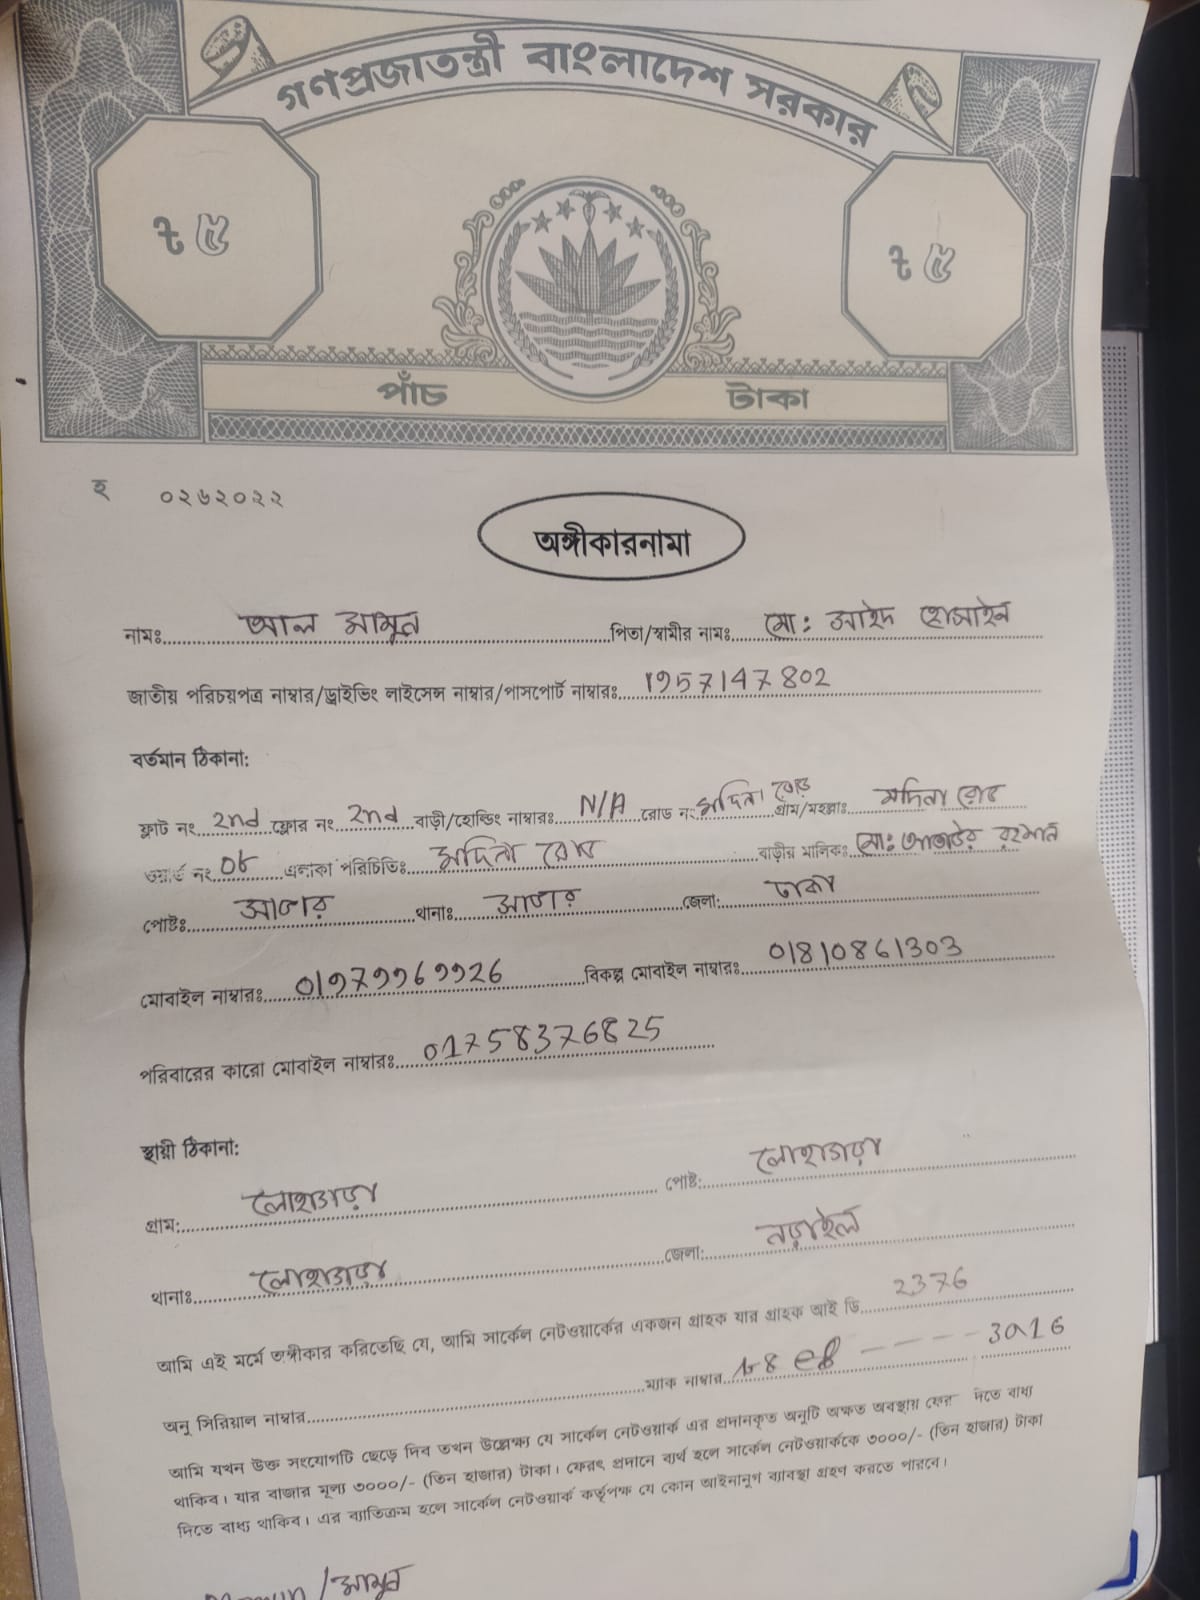 গণপ্রজাতন্ত্রী বাংলাদেশ সরকার
৳ ৫ ৳ ৫
পাঁচ টাকা
হ ০২৬২০২২
অঙ্গীকারনামা
নামঃ আল মামুন পিতা/স্বামীর নামঃ মো: সাইদ হোসাইন
জাতীয় পরিচয়পত্র নাম্বার/ড্রাইভিং লাইসেন্স নাম্বার/পাসপোর্ট নাম্বারঃ 1957147802
বর্তমান ঠিকানা:
ফ্লাট নং 2nd ফ্লোর নং 2nd বাড়ী/হোল্ডিং নাম্বারঃ N/A রোড নং মদিনা রোড গ্রাম/মহল্লাঃ মদিনা রোড
ওয়ার্ড নং 08 এলাকা পরিচিতিঃ মদিনা রোড বাড়ীর মালিকঃ মো: রহমান
পোষ্টঃ সাভার থানাঃ সাভার জেলা: ঢাকা
মোবাইল নাম্বারঃ 01979969926 বিকল্প মোবাইল নাম্বারঃ 01810861303
পরিবারের কারো মোবাইল নাম্বারঃ 01758376825
স্থায়ী ঠিকানা:
গ্রাম: লোহাগড়া পোষ্ট: লোহাগড়া
থানাঃ লোহাগড়া জেলা: নড়াইল
আমি এই মর্মে অঙ্গীকার করিতেছি যে, আমি সার্কেল নেটওয়ার্কের একজন গ্রাহক যার গ্রাহক আই ডি 2376
অনু সিরিয়াল নাম্বার ম্যাক নাম্বার 3a16
আমি যখন উক্ত সংযোগটি ছেড়ে দিব তখন উল্লেক্ষ্য যে সার্কেল নেটওয়ার্ক এর প্রদানকৃত অনুটি অক্ষত অবস্থায় ফের দিতে বাধ্য
থাকিব। যার বাজার মূল্য ৩০০০/- (তিন হাজার) টাকা। ফেরৎ প্রদানে ব্যর্থ হলে সার্কেল নেটওয়ার্ককে ৩০০০/- (তিন হাজার) টাকা
দিতে বাধ্য থাকিব। এর ব্যাতিক্রম হলে সার্কেল নেটওয়ার্ক কর্তৃপক্ষ যে কোন আইনানুগ ব্যাবস্থা গ্রহণ করতে পারবে।
/মামুন